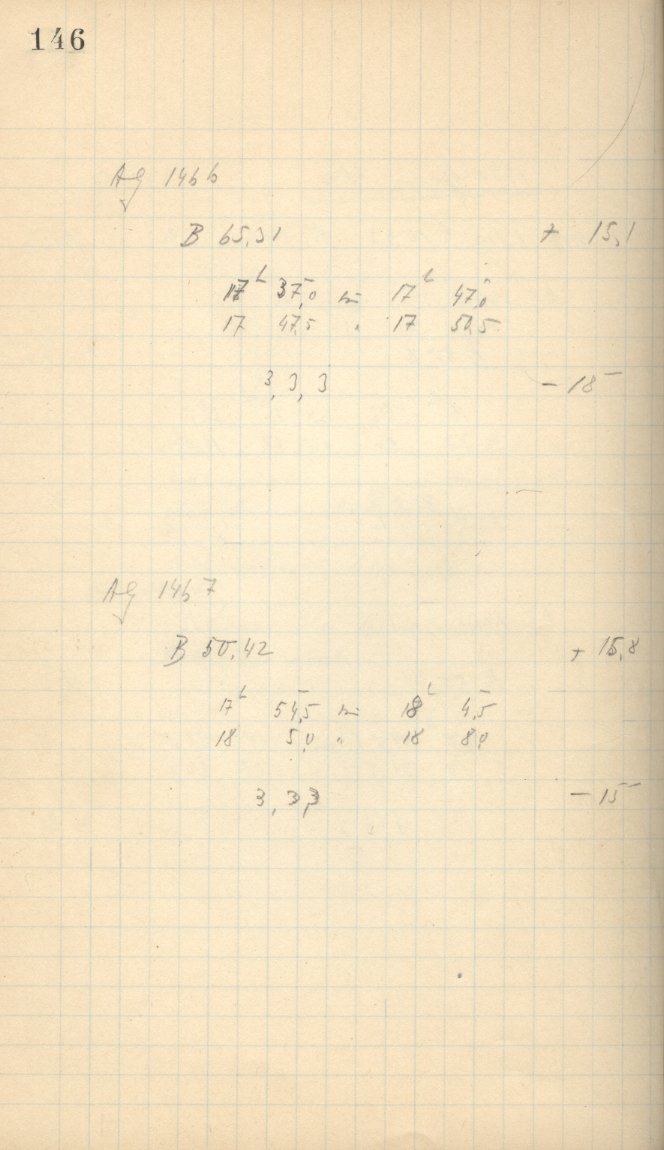 146
AG 1466
B 65,31 + 15,1
17h 37,0m bis 17h 47,0m
17 47,5 " 17 50,5
3, 3, 3 - 18m
AG 1467
B 50,42 + 15,8
17h 54,5m bis 18h 4,5m
18 5,0 " 18 8,0
3, 3, 3 - 15m